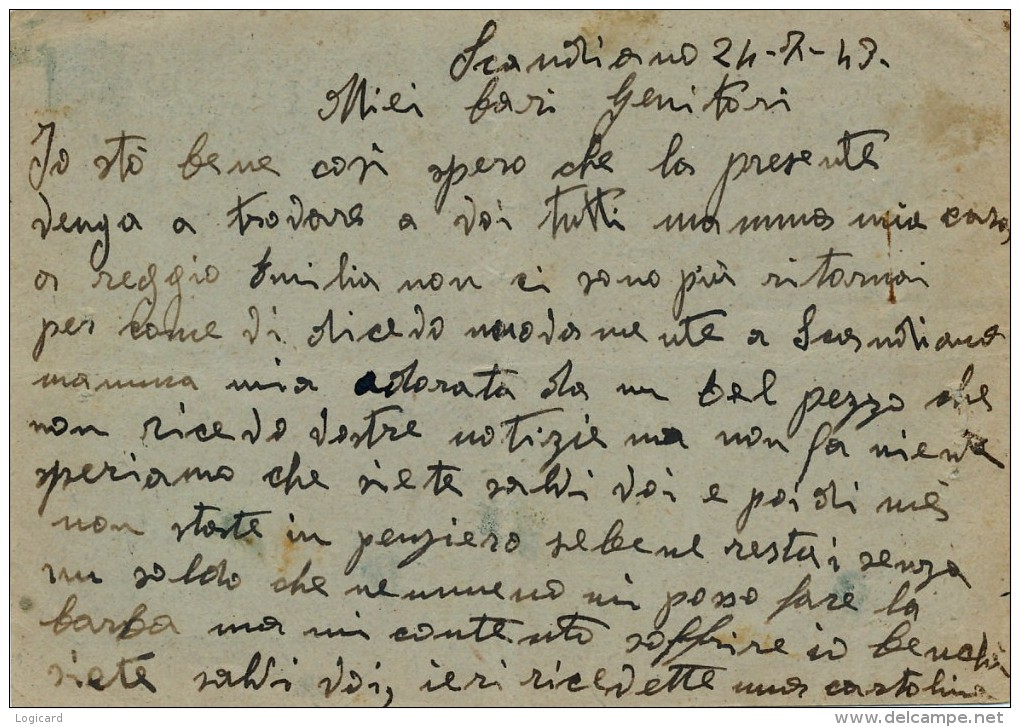 Scandiano 24-8-43.
Miei Cari Genitori
Io stò bene così spero che la presente
venga a trovare a voi tutti mamma mia cara,
a reggio Emilia non ci sono più ritornai
per come vi dicevo nuovamente a Scandiano
mamma mia adorata da un bel pezzo che
non ricevo vostre notizie ma non fa niente
speriamo che siete salvi voi e poi di mè
non state in penziero sebene restai senza
un soldo che nemmeno mi posso fare la
barba ma mi contento soffrire io benchè
siete salvi voi, ieri ricevette una cartolina
© Logicard
www.delcampe.net